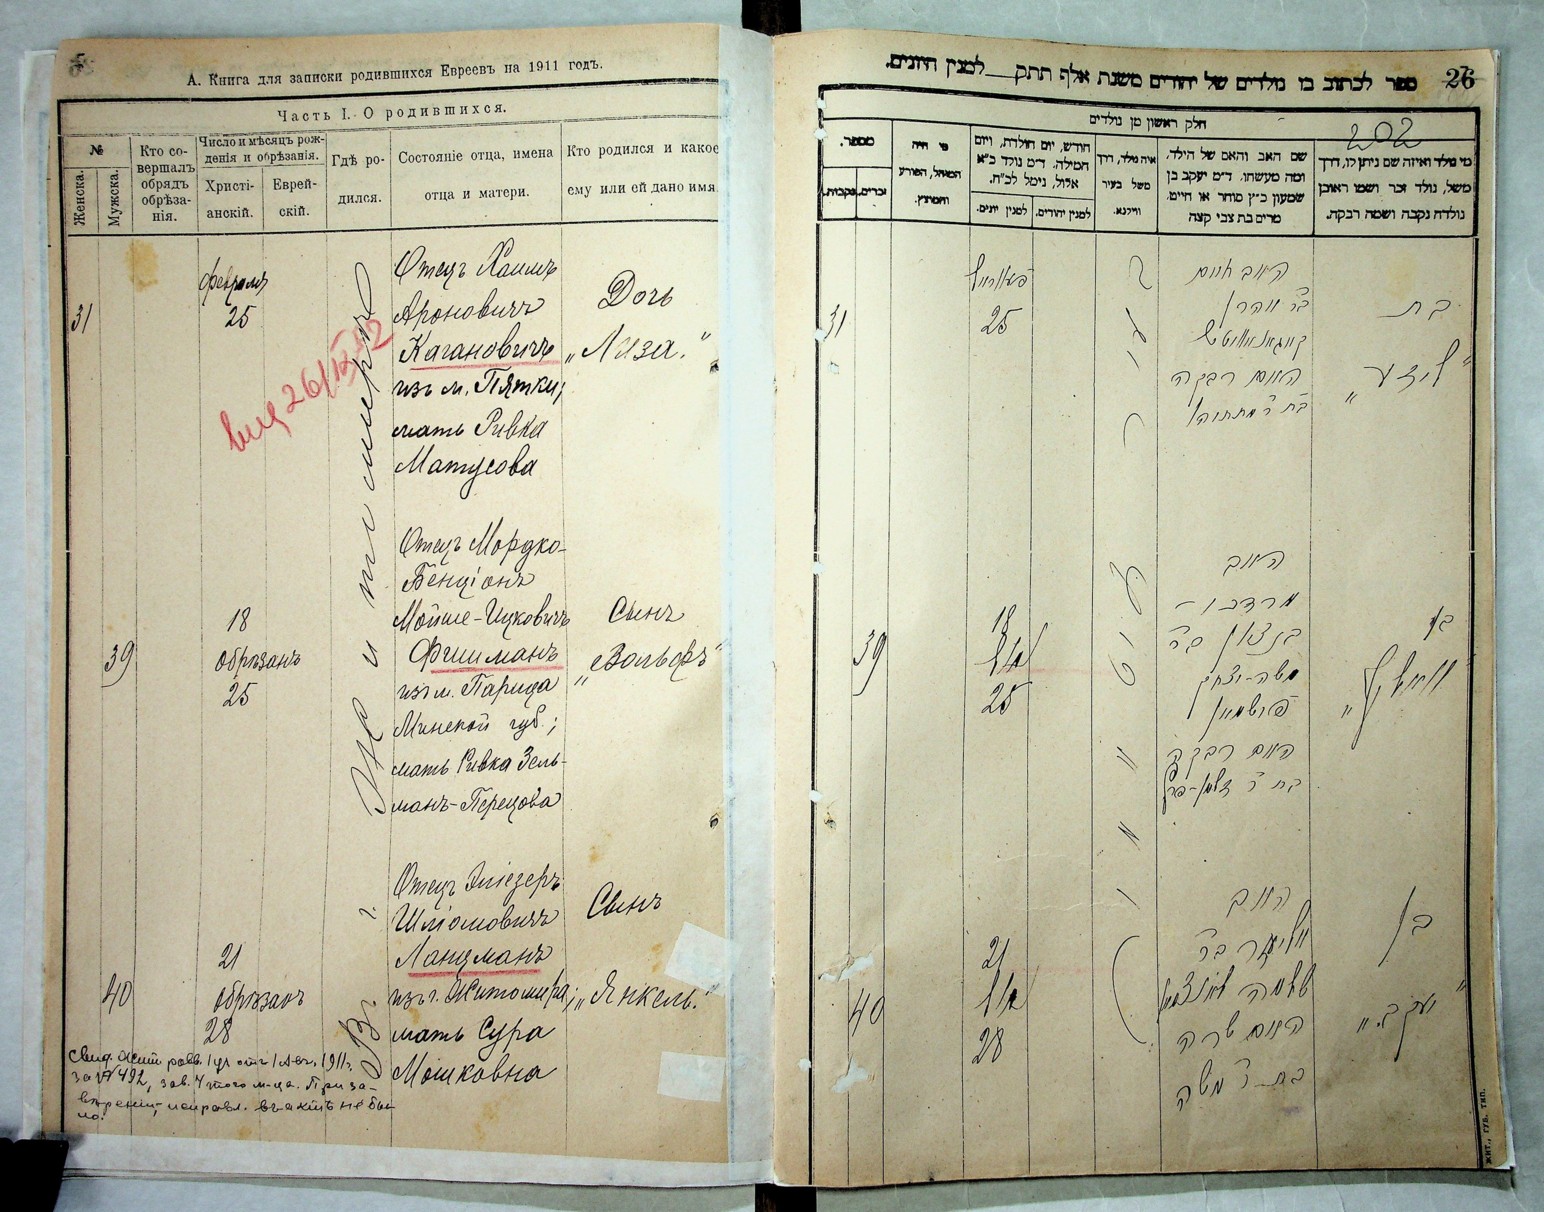 А. Книга для записки родившихся Евреевъ на 1911 годъ.
Часть I. О родившихся.
№
Женска.
Мужска.
Кто со-
вершалъ
обрядъ
обрѣза-
нія.
Число и мѣсяцъ рож-
денія и обрѣзанія.
Христі-
анскій.
Еврей-
скій.
Гдѣ ро-
дился.
Состояніе отца, имена
отца и матери.
Кто родился и какое
ему или ей дано имя.
31
Февраль
25
Отецъ Хаимъ
Ароновичъ
Кагановичъ
изъ м. Пятки;
мать Ривка
Матусова
Дочь
„Лиза.“
Въ г. Житомирѣ
39
18
обрѣзанъ
25
Отецъ Мордко-
Бенціонъ
Мойше-Ицковичъ
Фишманъ
изъ м. Парица
Минской губ.;
мать Ривка Зель-
манъ-Перецова
Сынъ
„Вольфъ“
40
21
обрѣзанъ
28
Отецъ Эліезеръ
Шліомовичъ
Ланцманъ
изъ г. Житомира;
мать Сура
Мошковна
Сынъ
„Янкель.“
1911 г.
за № 492,
26
ספר לכתוב בו נולדים של יהודים משנת אלף תתק למנין היונים.
202
חלק ראשון מן נולדים
מספר.
זכרים.
נקבות.
מי היה
המוהל, הפורע
והמוצץ.
חודש, יום הולדת, ויום
המילה. ד״מ נולד כ״א
אלול, נימל לכ״ח.
למנין יונים.
למנין יהודים.
איה נולד, דרך
משל בעיר
ווילנא.
שם האב והאם של הילד,
ומה מעשהו. ד״מ יעקב בן
שמעון כ״ץ סוחר או חיים,
מרים בת צבי קצה
מי נולד ואיזה שם ניתן לו, דרך
משל, נולד זכר ושמו ראובן
נולדה נקבה ושמה רבקה.
31
פעווראל
25
האב חיים
בר׳ אהרן
קאגאנאוויטש
האם רבקה
בת ר׳ מתתיהו
בת
„ליזע“
39
18
נמול
25
האב
מרדכי-
בנציון בר׳
משה-יצחק
פישמאן
האם רבקה
בת ר׳ זלמן-פרץ
בן
„וואלף“
40
21
נמול
28
האב
אליעזר בר׳
שלמה לאנצמאן
האם שרה
בת ר׳ משה
בן
„יעקב.“
ЖИТ., ГУБ. ТИП.